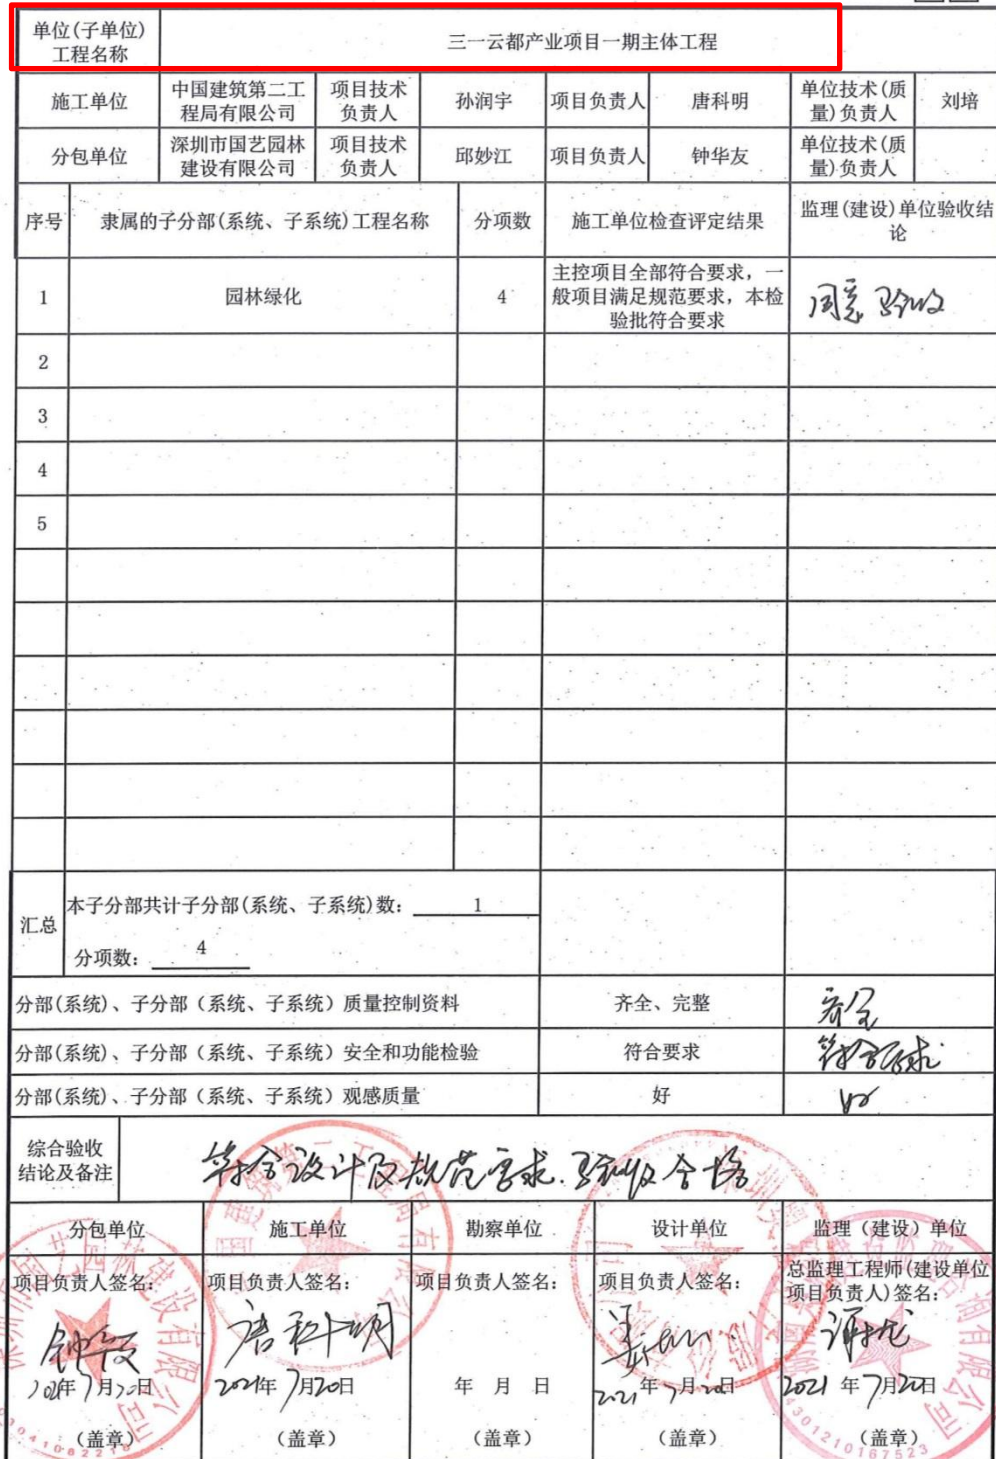 单位(子单位)
工程名称
三一云都产业项目一期主体工程
施工单位
中国建筑第二工
程局有限公司
项目技术
负责人
孙润宇
项目负责人
唐科明
单位技术(质
量)负责人
刘培
分包单位
深圳市国艺园林
建设有限公司
项目技术
负责人
邱妙江
项目负责人
钟华友
单位技术(质
量)负责人
序号
隶属的子分部(系统、子系统)工程名称
分项数
施工单位检查评定结果
监理(建设)单位验收结
论
1
园林绿化
4
主控项目全部符合要求，一
般项目满足规范要求，本检
验批符合要求
同意验收
2
3
4
5
汇总
本子分部共计子分部(系统、子系统)数： 1
分项数： 4
分部(系统)、子分部（系统、子系统）质量控制资料
齐全、完整
齐全
分部(系统)、子分部（系统、子系统）安全和功能检验
符合要求
符合要求
分部(系统)、子分部（系统、子系统）观感质量
好
好
综合验收
结论及备注
符合设计及规范要求.验收合格
分包单位
施工单位
勘察单位
设计单位
监理（建设）单位
项目负责人签名：
项目负责人签名：
项目负责人签名：
项目负责人签名：
总监理工程师(建设单位
项目负责人)签名：
唐科明
2021年7月20日
2021年7月20日
年 月 日
2021年7月20日
2021年7月20日
（盖章）
（盖章）
（盖章）
（盖章）
（盖章）